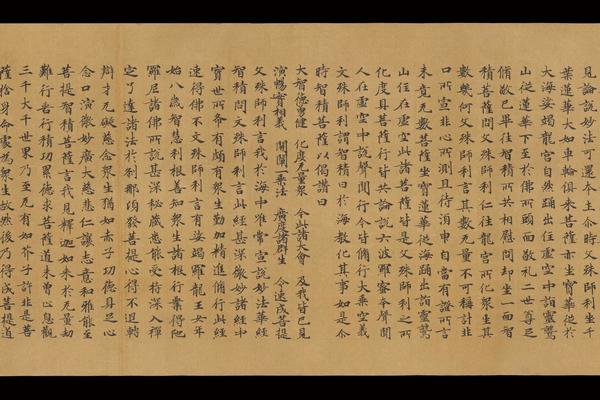 見論說妙法可還本土尒時文殊師利坐千
葉蓮華大如車輪俱來菩薩亦坐寶華從於
大海娑竭龍宮自然踊出住虛空中詣靈鷲
山從蓮華下至於佛所頭面敬礼二世尊足
脩敬已畢往智積所共相慰問却坐一面智
積菩薩問文殊師利仁往龍宮所化衆生其
數幾何文殊師利言其數无量不可稱計非
口所宣非心所測且待湏臾自當有證所言
未竟无數菩薩坐寶蓮華從海踊出詣靈鷲
山住在虛空此諸菩薩皆是文殊師利之所
化度具菩薩行皆共論說六波羅蜜本聲聞
人在虛空中說聲聞行今皆脩行大乘空義
文殊師利謂智積曰於海教化其事如是尒
時智積菩薩以偈讚曰
大智德勇健 化度无量衆 今此諸大會 及我皆已見
演暢實相義 開闡一乘法 廣度諸群生 令速成菩提
文殊師利言我於海中唯常宣說妙法華經
智積問文殊師利言此經甚深微妙諸經中
寶世所希有頗有衆生勤加精進脩行此經
速得佛不文殊師利言有娑竭羅龍王女年
始八歲智慧利根善知衆生諸根行業得陁
羅尼諸佛所說甚深秘藏悉能受持深入禪
定了達諸法於剎那頃發菩提心得不退轉
辯才无礙慈念衆生猶如赤子功德具足心
念口演微妙廣大慈悲仁讓志意和雅能至
菩提智積菩薩言我見釋迦如來於无量劫
難行苦行積功累德求菩薩道未曾止息觀
三千大千世界乃至无有如芥子許非是菩
薩捨身命處爲衆生故然後乃得成菩提道